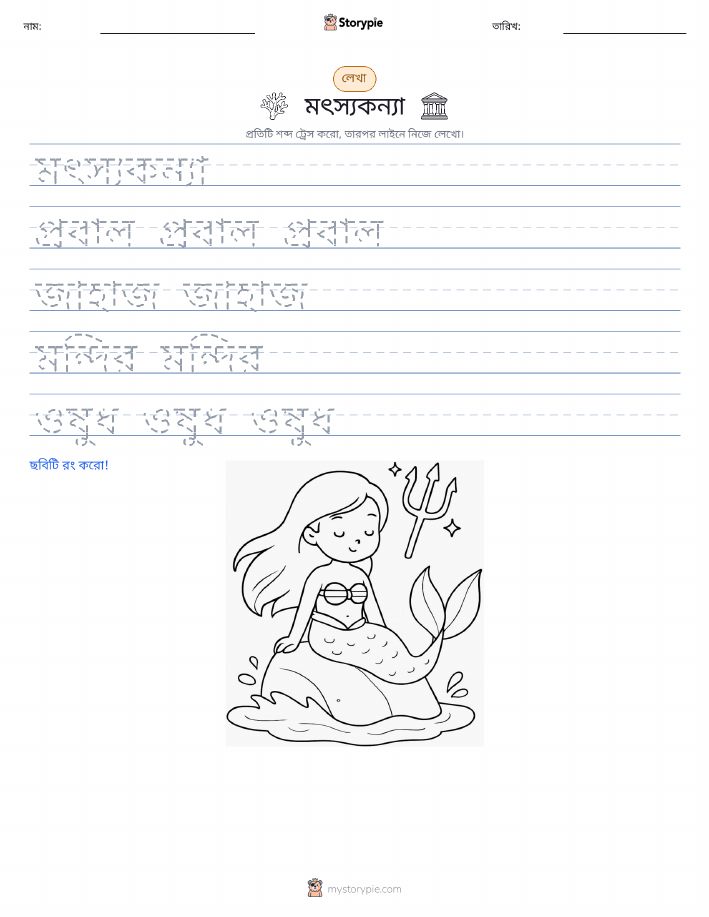 নাম:
Storypie
তারিখ:
লেখা
মৎস্যকন্যা
প্রতিটি শব্দ ট্রেস করো, তারপর লাইনে নিজে লেখো।
মৎস্যকন্যা
প্রবাল প্রবাল প্রবাল
জাহাজ জাহাজ
মন্দির মন্দির
ওষুধ ওষুধ ওষুধ
ছবিটি রং করো!
mystorypie.com